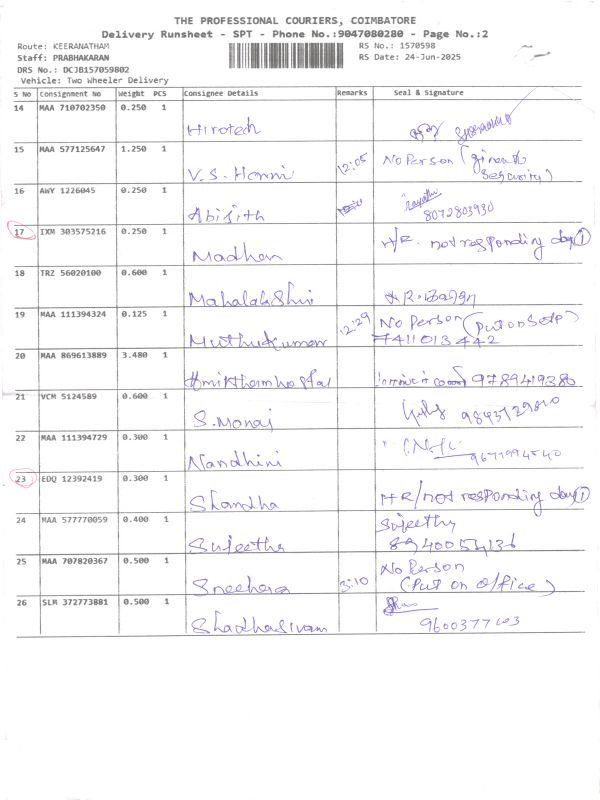 THE PROFESSIONAL COURIERS, COIMBATORE
Delivery Runsheet - SPT - Phone No.:9047080280 - Page No.:2
Route: KEERANATHAM RS No.: 1570598
Staff: PRABHAKARAN RS Date: 24-Jun-2025
DRS No.: DCJB157059802
Vehicle: Two Wheeler Delivery
S No Consignment No Weight PCS Consignee Details Remarks Seal & Signature
14 MAA 710702350 0.250 1
Hirotech
15 MAA 577125647 1.250 1 12:05 No Person (given to
V.S. Hanni Security)
16 AWY 1226045 0.250 1
Abijith 8072803930
17 IXM 303575216 0.250 1 H/R. not responding day ①
Madhan
18 TRZ 56020100 0.600 1
Mahalakshmi
19 MAA 111394324 0.125 1 12:29 No Person (put on
Muthukumar 7411013442
20 MAA 869613889 3.480 1
9789419380
21 VCM 5124589 0.600 1
S. Monaj
22 MAA 111394729 0.300 1
Nandhini
23 EDQ 12392419 0.300 1
Shamdha HR/not responding day ①
24 MAA 577770059 0.400 1 Sujeetha
Sujeetha
25 MAA 707820367 0.500 1 3:10 No Person
Sneehera (Put on office)
26 SLM 372773881 0.500 1
Shadhasivam